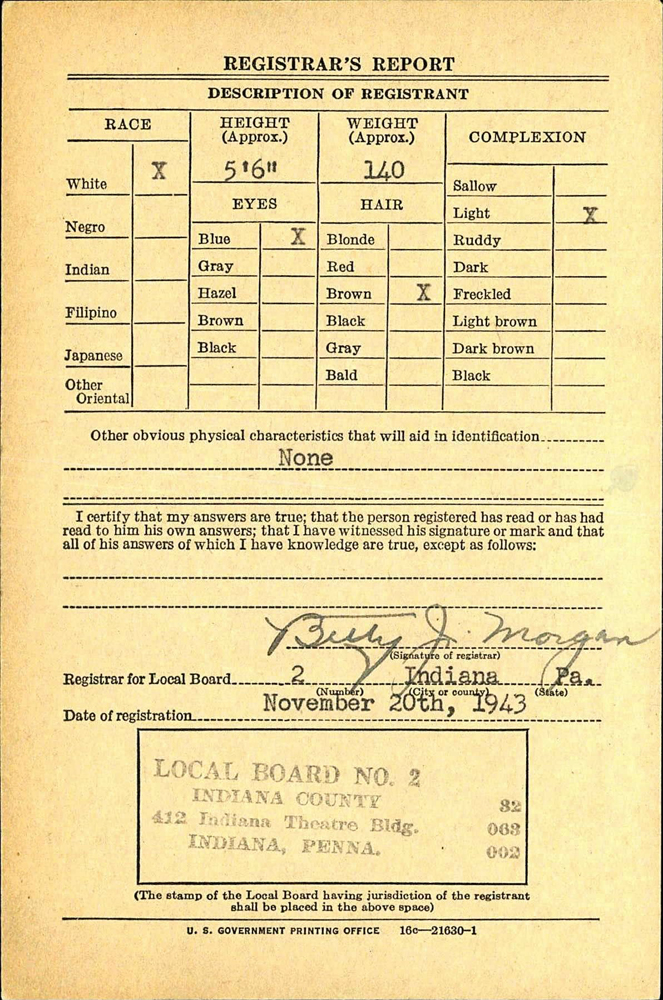 REGISTRAR'S REPORT
DESCRIPTION OF REGISTRANT
RACE
HEIGHT (Approx.)
WEIGHT (Approx.)
COMPLEXION
White X
5'6"
140
Sallow
EYES
HAIR
Light X
Negro
Blue X
Blonde
Ruddy
Indian
Gray
Red
Dark
Hazel
Brown X
Freckled
Filipino
Brown
Black
Light brown
Japanese
Black
Gray
Dark brown
Other Oriental
Bald
Black
Other obvious physical characteristics that will aid in identification
None
I certify that my answers are true; that the person registered has read or has had
read to him his own answers; that I have witnessed his signature or mark and that
all of his answers of which I have knowledge are true, except as follows:
Betty J. Morgan
(Signature of registrar)
Registrar for Local Board 2 Indiana Pa.
(Number) (City or county) (State)
Date of registration November 20th, 1943
LOCAL BOARD NO. 2
INDIANA COUNTY 82
412 Indiana Theatre Bldg. 063
INDIANA, PENNA. 002
(The stamp of the Local Board having jurisdiction of the registrant
shall be placed in the above space)
U. S. GOVERNMENT PRINTING OFFICE 16c—21630-1